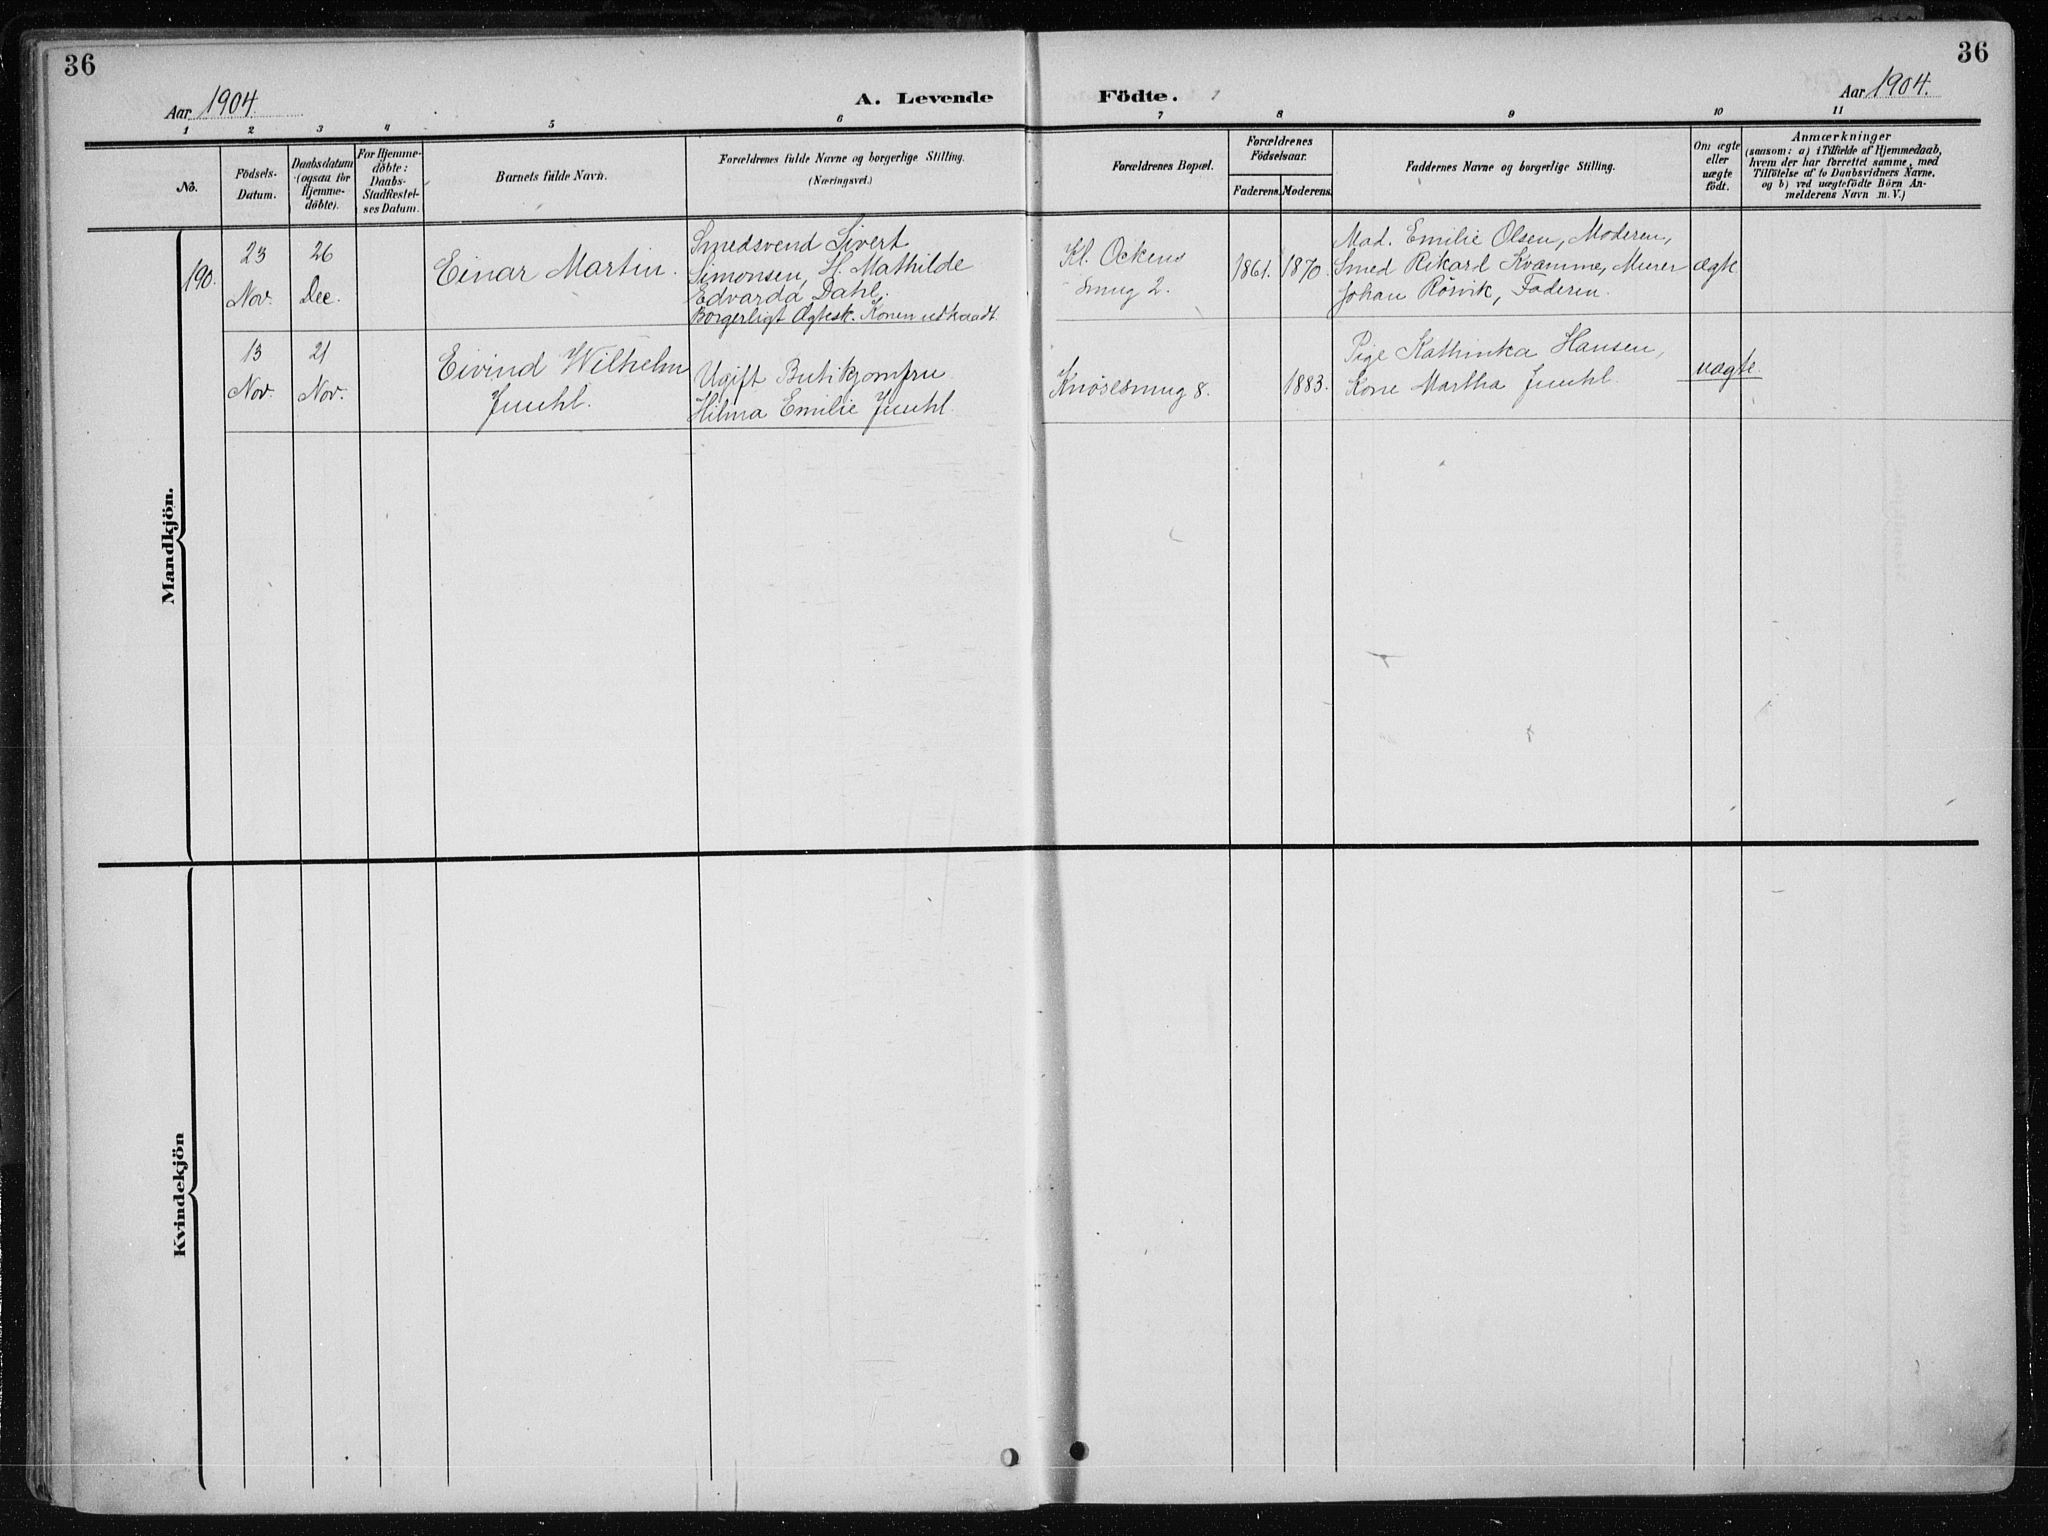 36
36
Aar 1904.
A. Levende Födte.
Aar 1904.
1 2 3 4 5 6 7 8 9 10 11
No.
Födsels-
Datum.
Daabsdatum
(ogsaa for
Hjemme-
döbte).
For Hjemme-
döbte:
Daabs-
Stadfæstel-
ses Datum.
Barnets fulde Navn.
Forældrenes fulde Navne og borgerlige Stilling.
(Næringsvei.)
Forældrenes Bopæl.
Forældrenes
Födselsaar.
Faderens. Moderens.
Faddernes Navne og borgerlige Stilling.
Om ægte
eller
uægte
födt.
Anmærkninger
(saasom: a) i Tilfælde af Hjemmedaab,
hvem der har forrettet samme, med
Tilföielse af to Daabsvidners Navne,
og b) ved uægtefödte Börn An-
melderens Navn m. V.)
Mandkjön.
190.
23
Nov.
26
Dec.
Einar Martin.
Smedsvend Sivert
Simonsen, H. Mathilde
Edvarda Dahl,
Borgerligt Ægtesk. Konen udtraadt.
Kl. Ockens
smug 2.
1861.
1870.
Mad. Emilie Olsen, Moderen,
Smed Rikard Kvamme, Murer
Johan Rørvik, Faderen.
ægte
13
Nov.
21
Nov.
Eivind Wilhelm
Juuhl.
Ugift Butikjomfru
Hilma Emilie Juuhl.
Knøsesmug 8.
1883.
Pige Kathinka Hansen,
Kone Martha Juuhl.
uægte.
Kvindekjön